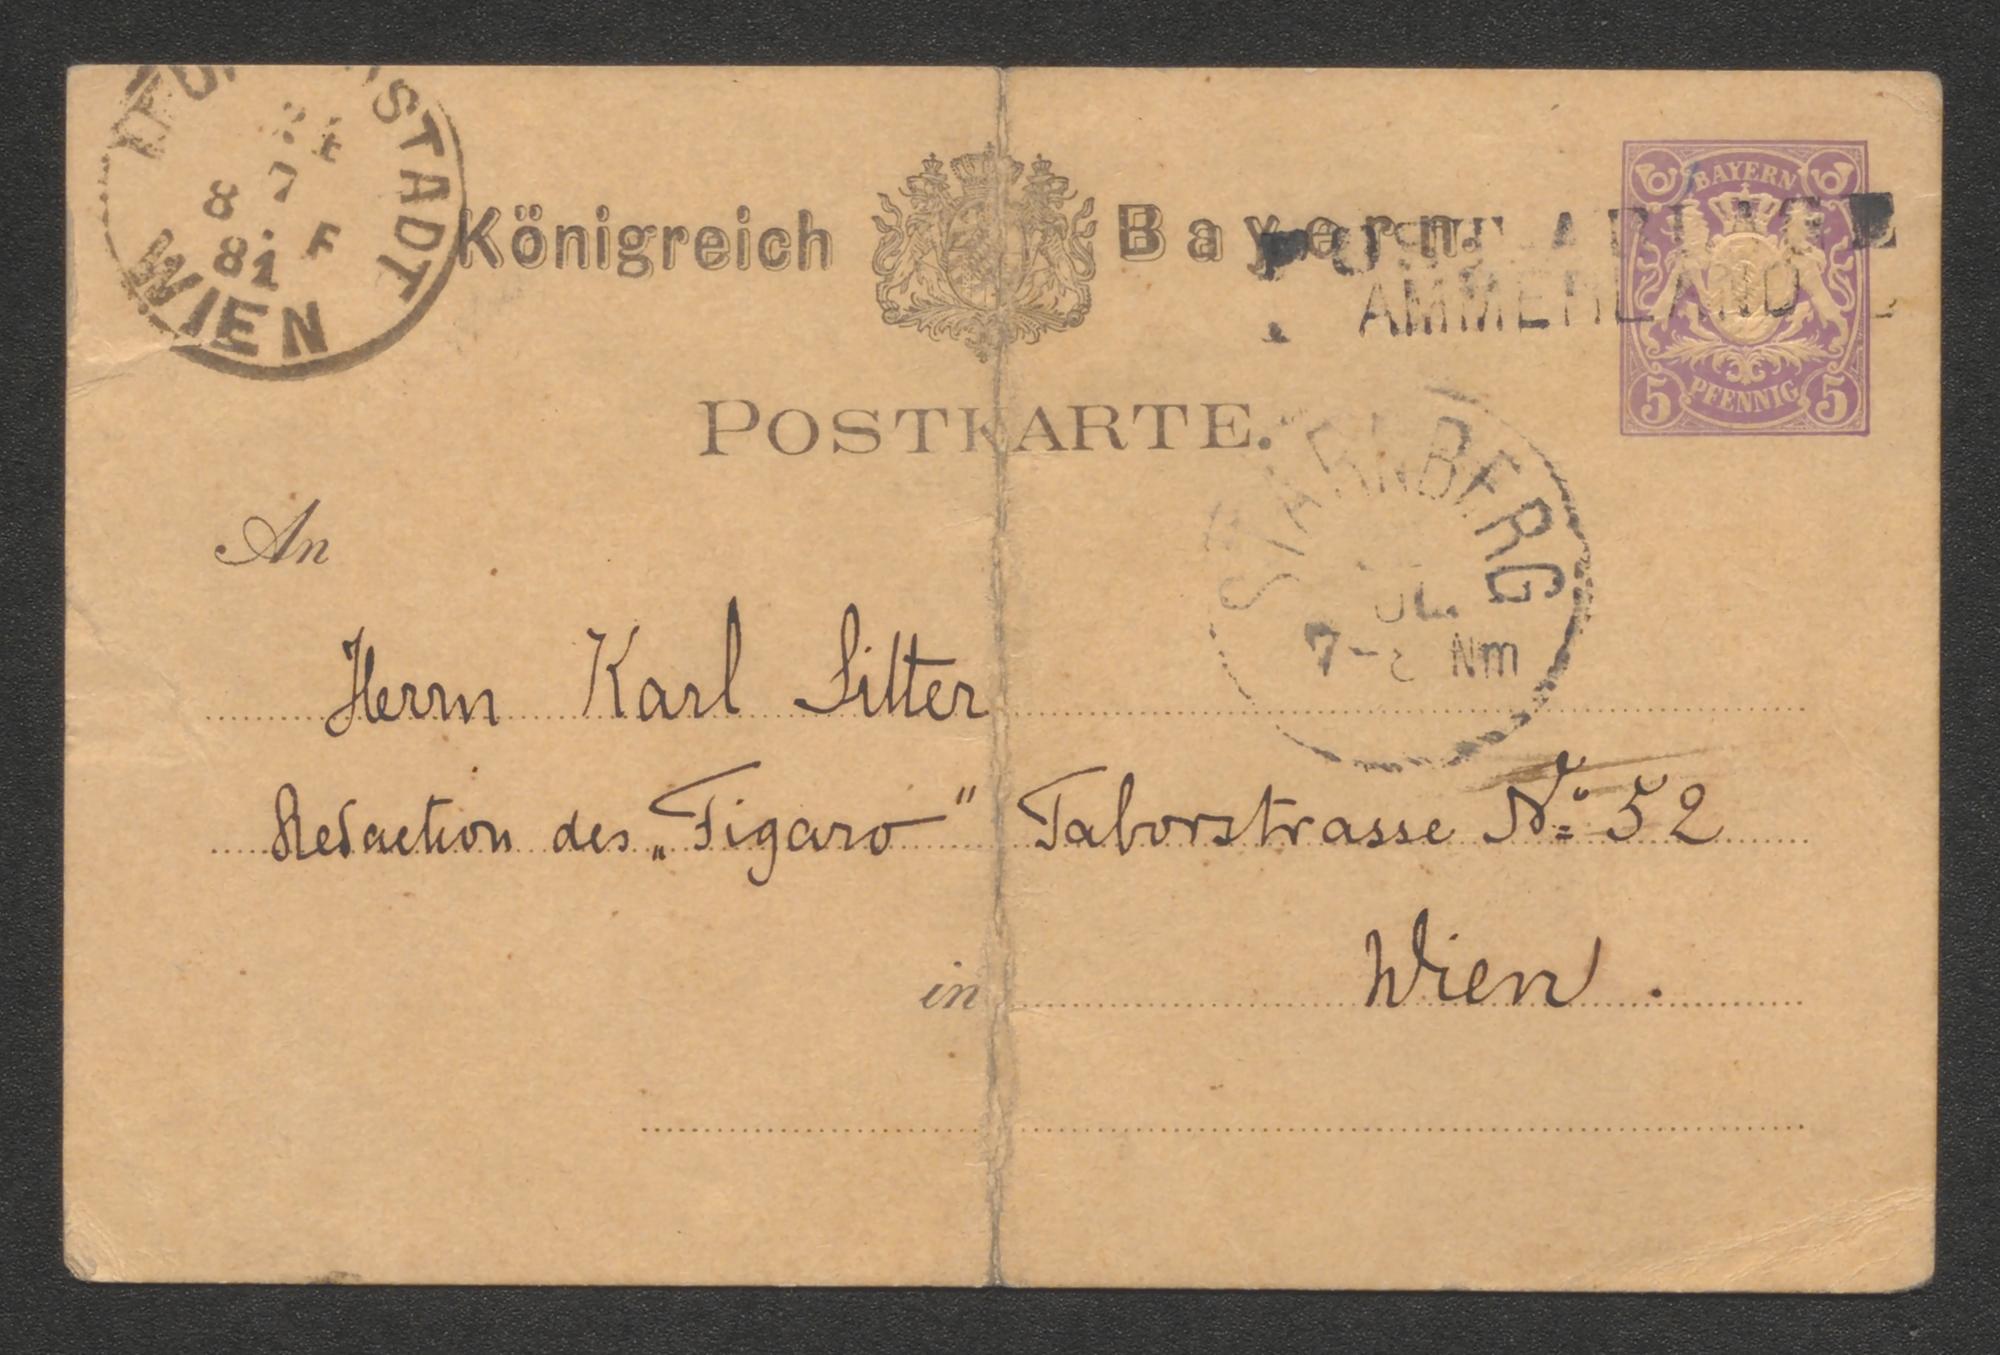 WIEN
8 7
81 F
Königreich Bayern.
AMMERLAND
BAYERN
5 PFENNIG 5
POSTKARTE.
STARNBERG
7-8 Nm
An
Herrn Karl Sitter
Redaction des „Figaro" Taborstrasse No 52
in Wien.